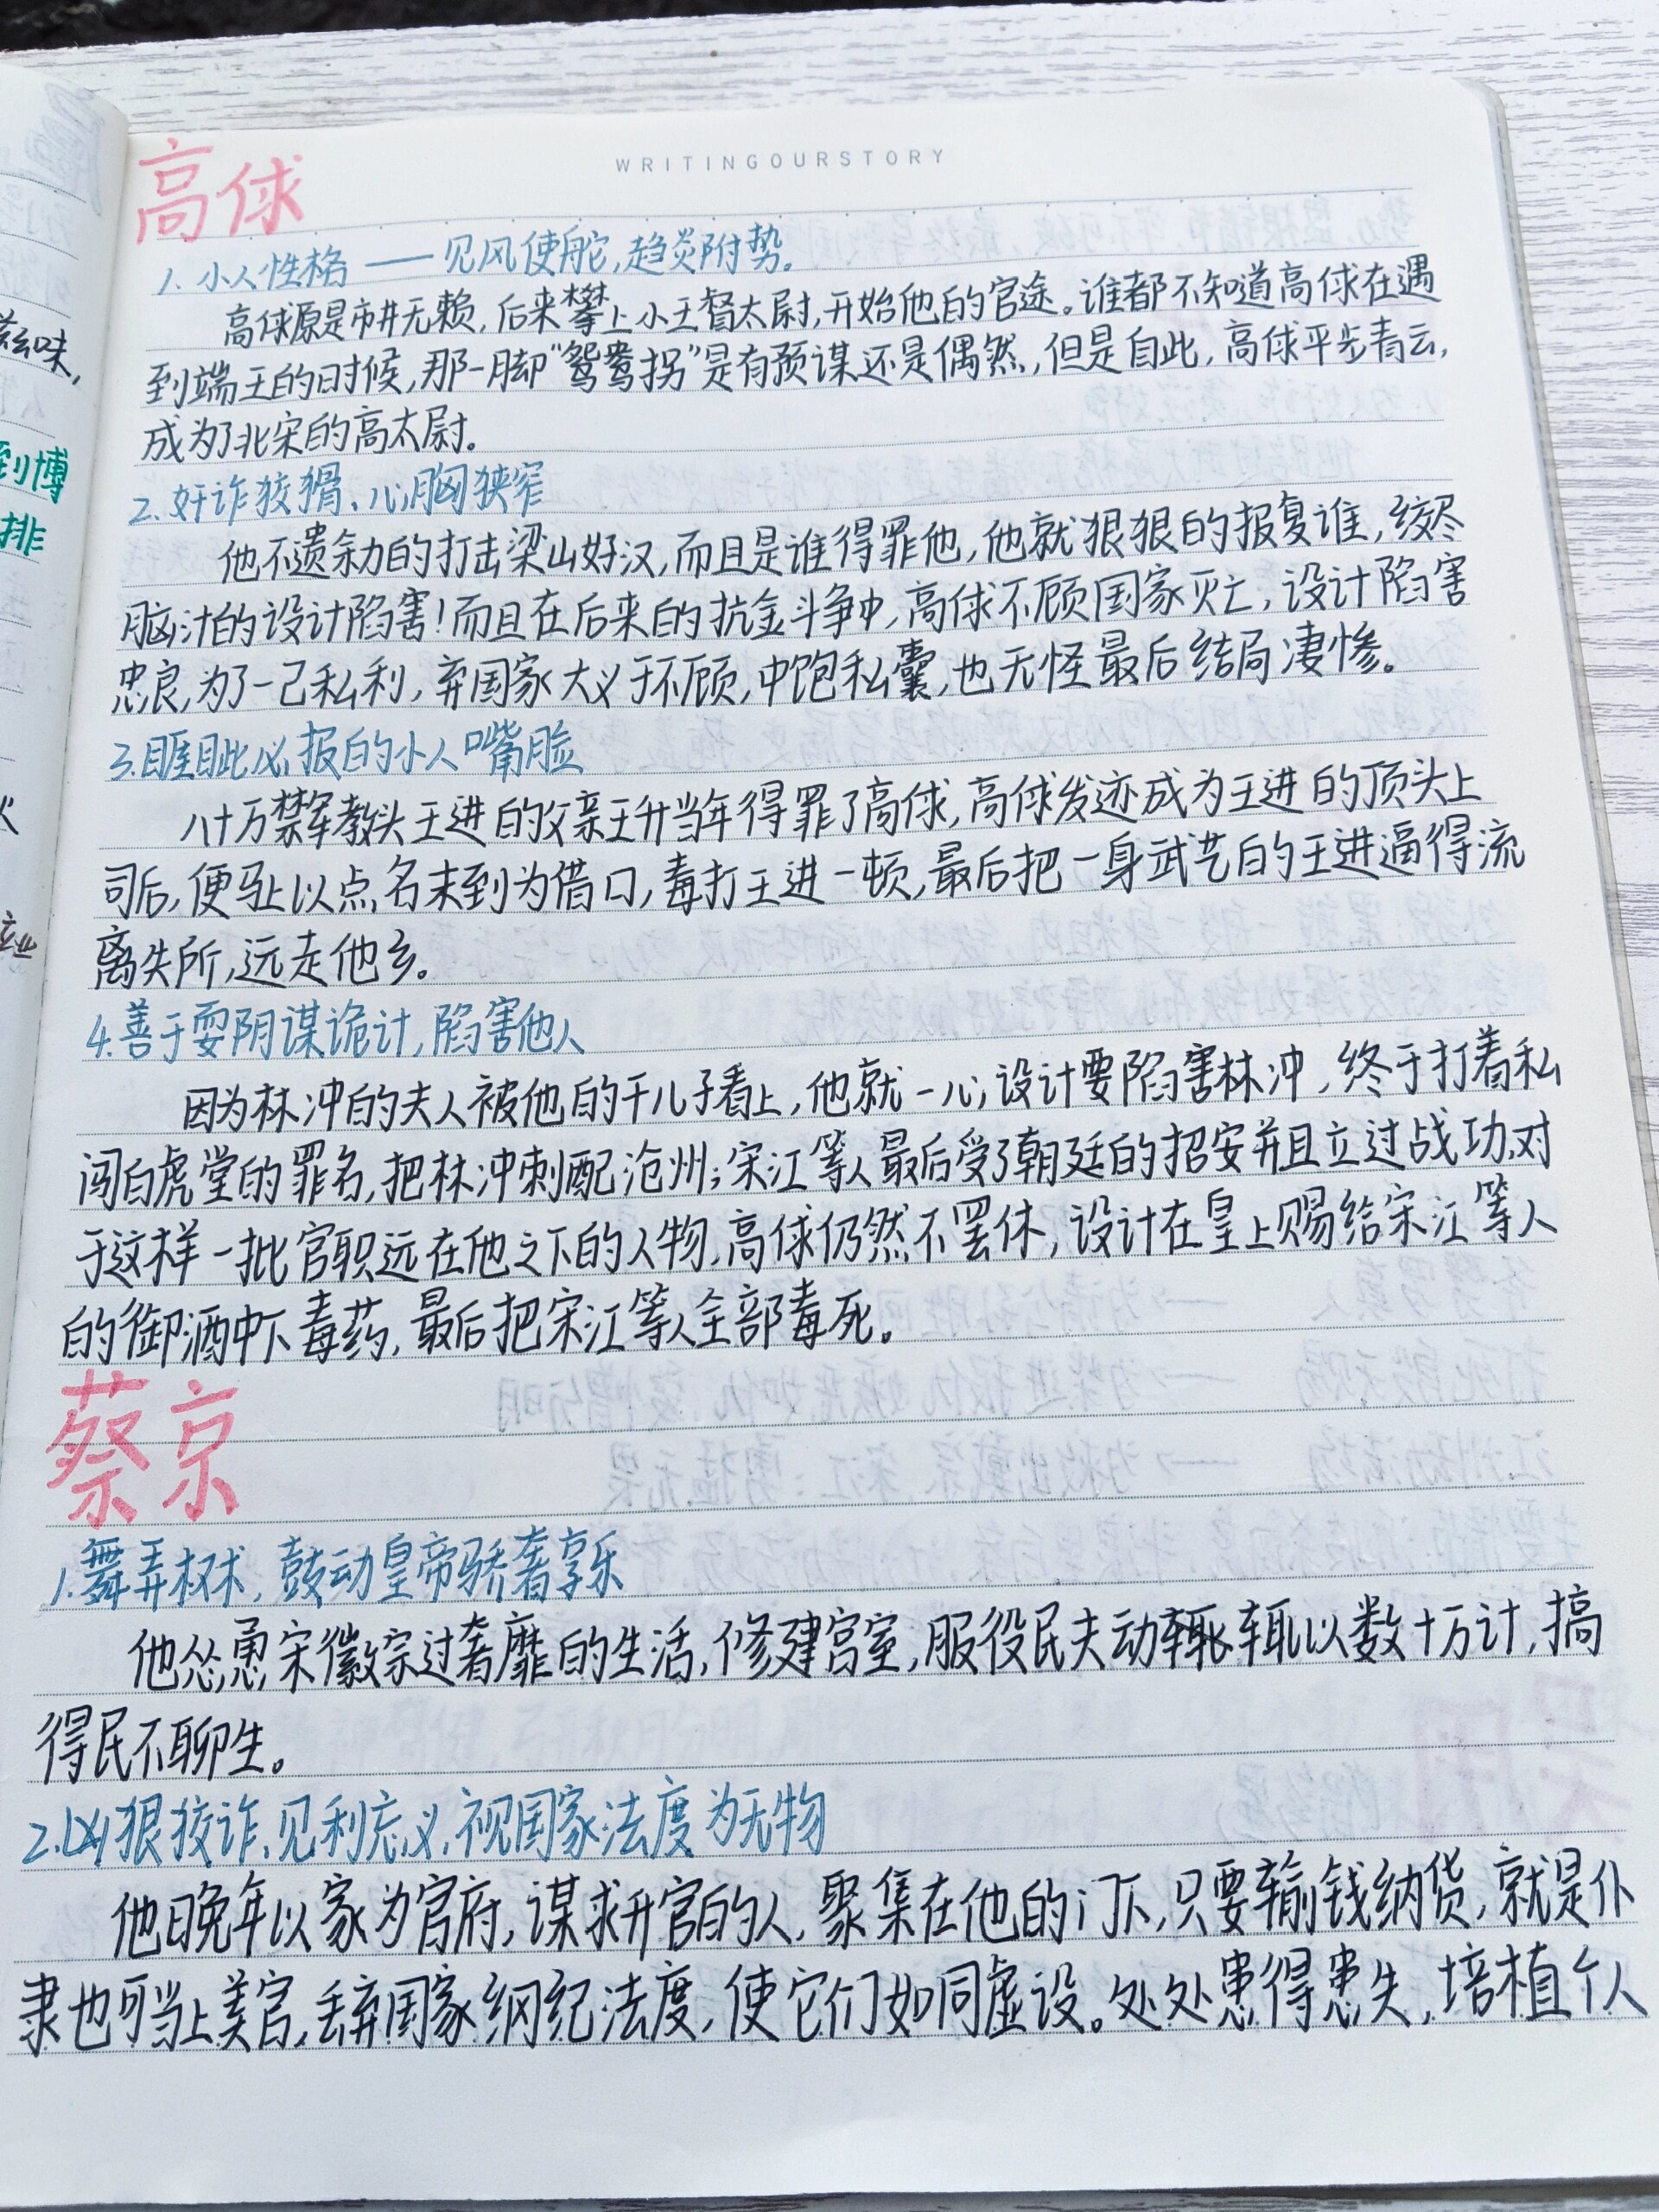 WRITINGOURSTORY
高俅
1. 小人性格 —— 见风使舵,趋炎附势。
高俅原是市井无赖,后来攀上小王督太尉,开始他的官途。谁都不知道高俅在遇
到端王的时候,那一脚“鸳鸯拐”是有预谋还是偶然,但是自此,高俅平步青云,
成为了北宋的高太尉。
2. 奸诈狡猾、心胸狭窄
他不遗余力的打击梁山好汉,而且是谁得罪他,他就狠狠的报复谁,绞尽
脑汁的设计陷害!而且在后来的抗金斗争中,高俅不顾国家灭亡,设计陷害
忠良,为了一己私利,弃国家大义于不顾,中饱私囊,也无怪最后结局凄惨。
3.睚眦必报的小人嘴脸
八十万禁军教头王进的父亲王升当年得罪了高俅,高俅发迹成为王进的顶头上
司后,便马上以点名未到为借口,毒打王进一顿,最后把一身武艺的王进逼得流
离失所,远走他乡。
4.善于耍阴谋诡计,陷害他人
因为林冲的夫人被他的干儿子看上,他就一心设计要陷害林冲,终于打着私
闯白虎堂的罪名,把林冲刺配沧州;宋江等人最后受了朝廷的招安并且立过战功,对
于这样一批官职远在他之下的人物,高俅仍然不罢休,设计在皇上赐给宋江等人
的御酒中下毒药,最后把宋江等人全部毒死。
蔡京
1.舞弄权术,鼓动皇帝骄奢享乐
他怂恿宋徽宗过奢靡的生活,修建宫室,服役民夫动辄以数十万计,搞
得民不聊生。
2.凶狠狡诈、见利忘义,视国家法度为无物
他晚年以家为官府,谋求升官的人,聚集在他的门下,只要输钱纳货,就是仆
隶也可当上美官,丢弃国家纲纪法度,使它们如同虚设。处处患得患失,培植个人
滋味,
到博
排